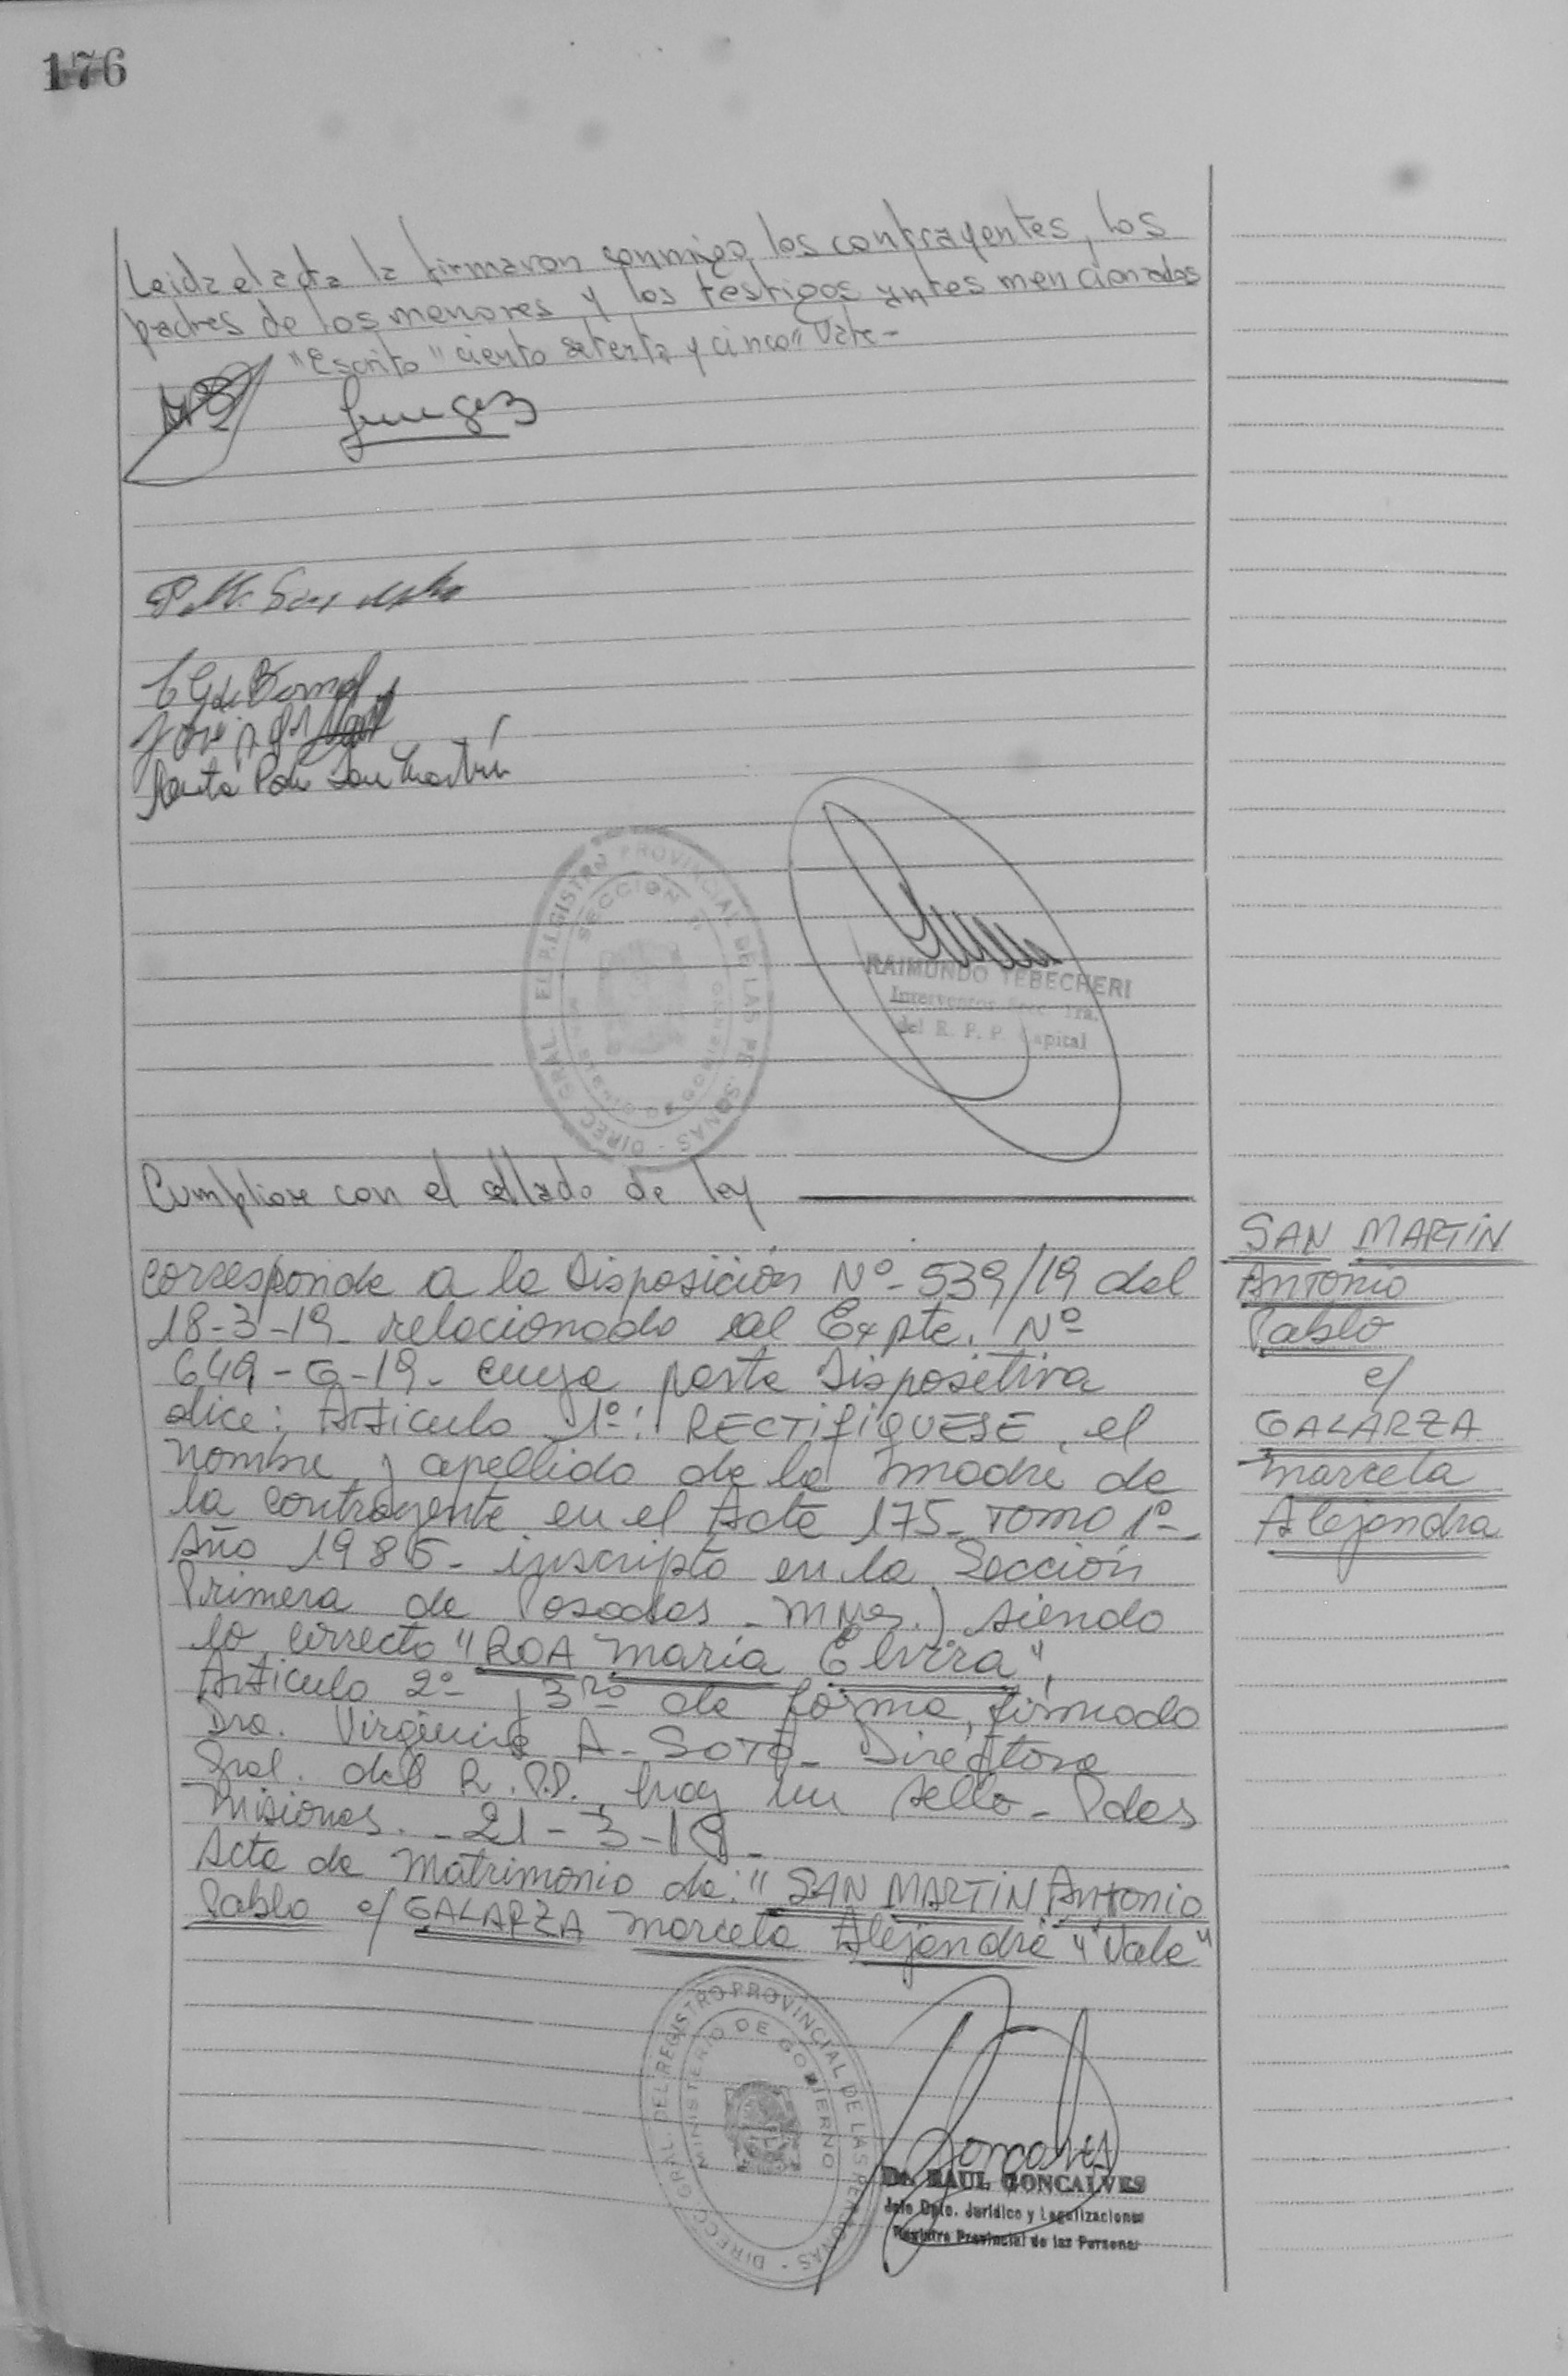 176
Leida el acta la firmaron conmigo los contrayentes, los
padres de los menores y los testigos antes mencionados
"Escrito" ciento setenta y cinco" Vale-
DIREC. GRAL. DEL REGISTRO PROVINCIAL DE LAS PERSONAS
SECCION
RAIMUNDO TEBECHERI
Interventor Secc. 1ra.
del R. P. P. Capital
Cumpliose con el sellado de ley
SAN MARTIN
Antonio
Pablo
c/
GALARZA
Marcela
Alejandra
Corresponde a la Disposición Nº- 539/19 del
18-3-19- relacionado al Expte. Nº
649-G-19- cuya parte Dispositiva
dice: Articulo 1º: RECTIFIQUESE, el
nombre y apellido de la madre de
la contrayente en el Acta 175- Tomo 1º-
Año 1985- inscripta en la Sección
Primera de Posadas - Mnes.) siendo
lo correcto "ROA María Elvira",
Articulo 2º y 3ro de forma, firmado
Dra. Virginia A- SOTO- Directora
Gral. del R.P.P. hay un sello- Pdas
Misiones.- 21-3-19-
Acta de Matrimonio de: "SAN MARTIN Antonio
Pablo c/ GALARZA Marcela Alejandra" "Vale"
DIRECC. GRAL. DEL REGISTRO PROVINCIAL DE LAS PERSONAS
MINISTERIO DE GOBIERNO
Dr. RAUL GONCALVES
Jefe Dpto. Jurídico y Legalizaciones
Registro Provincial de las Personas